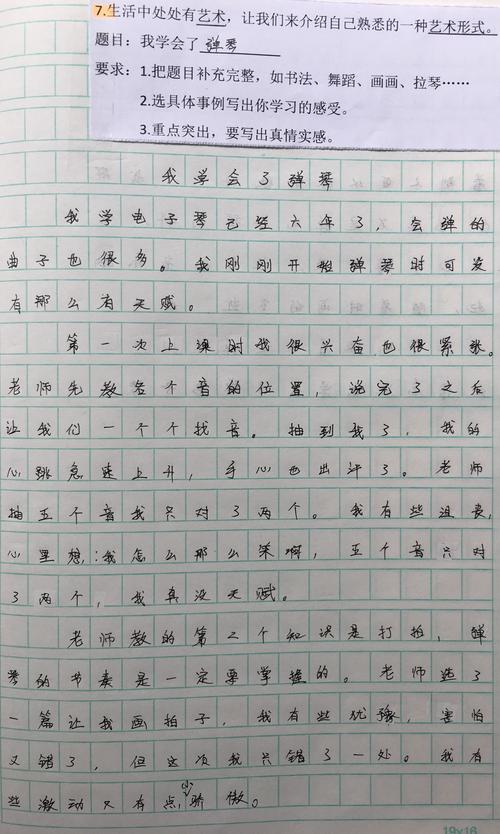 7.生活中处处有艺术，让我们来介绍自己熟悉的一种艺术形式。
题目：我学会了弹琴
要求：1.把题目补充完整，如书法、舞蹈、画画、拉琴……
2.选具体事例写出你学习的感受。
3.重点突出，要写出真情实感。
我学会了弹琴
我学电子琴已经六年了，会弹的
曲子也很多。我刚刚开始弹琴时可没
有那么有天赋。
第一次上课时我很兴奋也很紧张。
老师先教各个音的位置，说完了之后
让我们一个个找音。抽到我了，我的
心跳急速上升，手心也出汗了。老师
抽五个音我只对了两个。我有些沮丧，
心里想：我怎么那么笨啊，五个音只对
了两个，我真没天赋。
老师教的第二个知识是打拍，弹
琴的节奏是一定要掌握的。老师选了
一篇让我画拍子，我有些犹豫，害怕
又错了，但这次我只错了一处。我有
些激动又有点少骄傲。
19×16